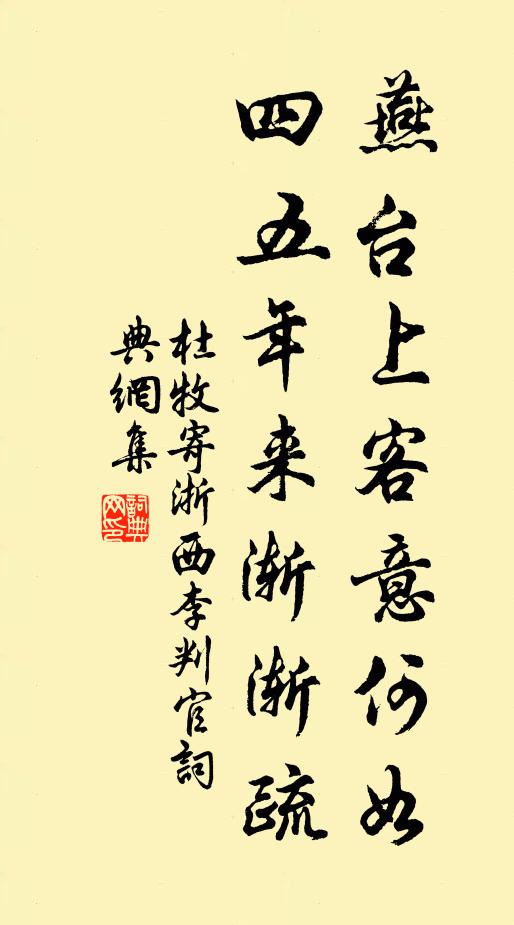 燕台上客意何如
四五年来渐渐疏
杜牧寄浙西李判官詞
典網集
詞典
网印